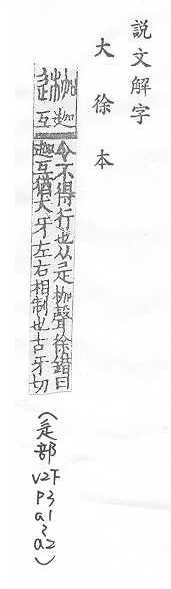 說文解字
大徐本
互
令不得行也从辵枷聲徐鍇曰
互猶犬牙左右相制也古牙切
(辵部V2下P3a1~a2)